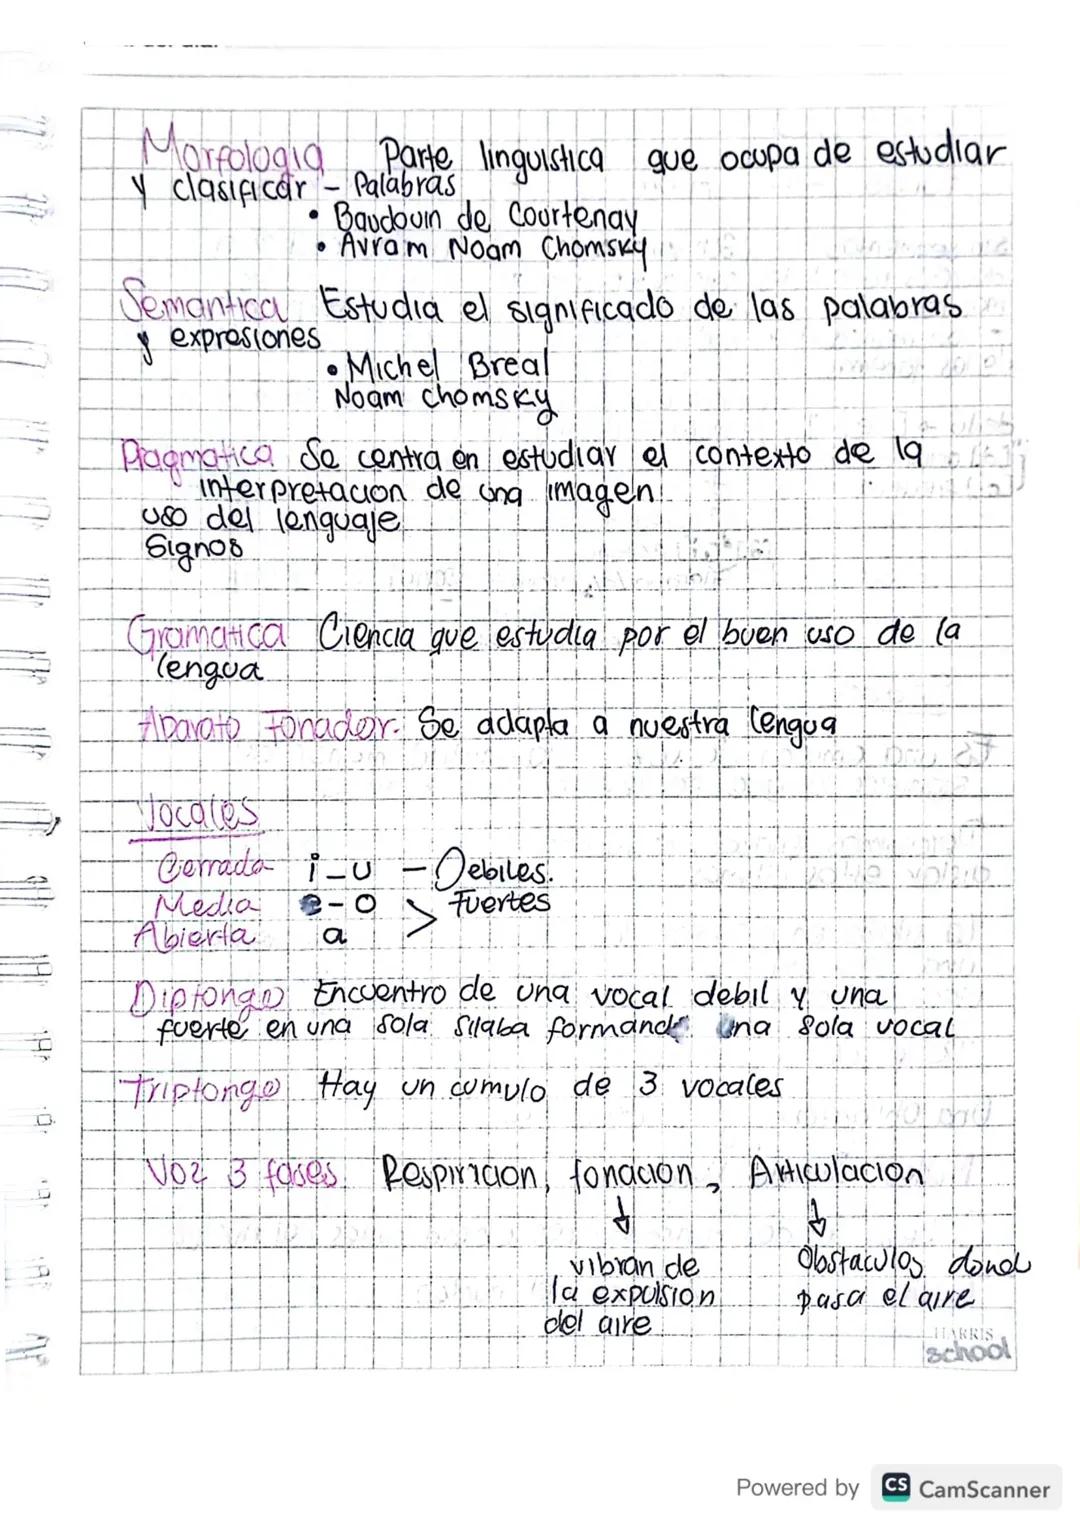 Morfologia Parte linguistica que ocupa de estudiar
y clasificar - Palabras
• Baudouin de Courtenay
• Avram Noam Chomsky
Semantica Estudia el significado de las palabras
y expresiones
• Michel Breal
Noam chomsky
Pragmatica Se centra en estudiar el contexto de la
interpretacion de una imagen
uso del lenguaje
Signos
Gramatica Ciencia que estudia por el buen uso de la
lengua
Aparato Fonador. Se adapta a nuestra lengua
Vocales
Cerrada i-u - Debiles.
Media e-o > Fuertes
Abierta a
Diptongo Encuentro de una vocal debil y una
fuerte en una sola silaba formando una sola vocal
Triptongo Hay un cumulo de 3 vocales
Voz 3 fases Respiricion, fonacion, Articulacion
vibran de Obstaculos dond
la expulsion pasa el aire
del aire
HARRIS
school
Powered by CS CamScanner